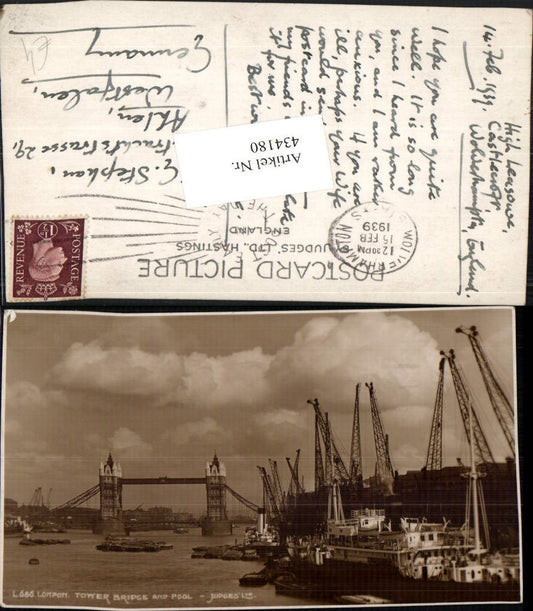 High Leasowe,
Castlecroft
Wolverhampton, England.
14. Feb. 1939.
I hope you are quite
well. It is so long
since I heard from
you, and I am rather
anxious. If you are
ill, perhaps your wife
would send
postcard in
my friends
for us.
Best
G. Stephan,
strasse 29,
Ahlen,
Westfalen,
Germany
Artikel Nr.
434180
POSTCARD PICTURE
JUDGES' LTD, HASTINGS
ENGLAND
WOLVERHAMPTON
12.30PM
15 FEB
1939
POSTAGE
REVENUE
1½D
L686. LONDON. TOWER BRIDGE AND POOL - JUDGES' LTD.